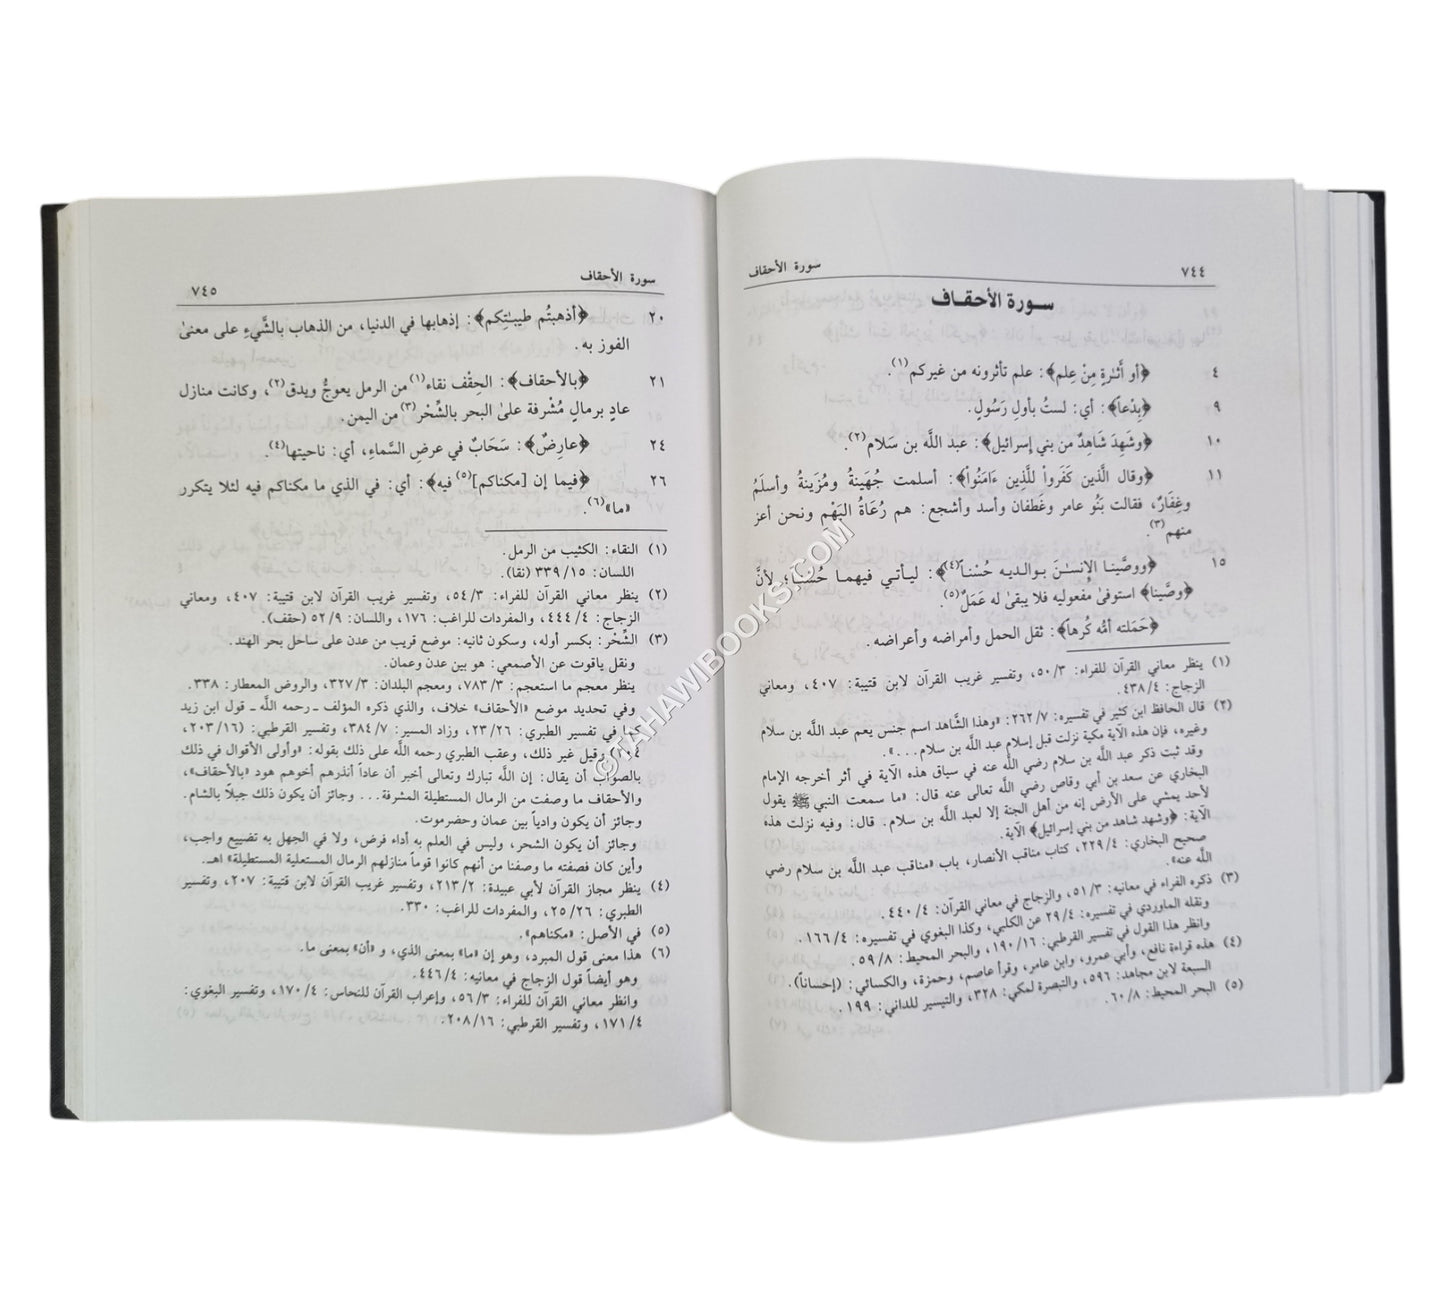 ٧٤٤ سورة الأحقاف
سـورة الأحـقـاف
٤ ﴿أو أَثـٰرةٍ مِنْ عِلم﴾: علم تأثرونه من غيركم(١).
٩ ﴿بِدْعاً﴾: أي: لستُ بأولِ رَسُولِ.
١٠ ﴿وشَهِدَ شَاهِدٌ من بني إسرائيل﴾: عبد اللَّه بن سَلام(٢).
١١ ﴿وقال الَّذين كَفَرواْ للَّذين ءَامَنُواْ﴾: أسلمت جُهَينةُ ومُزَينةُ وأسلَمُ
وغِفَارٌ، فقالت بَنُو عامر وغَطفان وأسد وأشجع: هم رُعَاةُ البَهْم ونحن أعز
منهم(٣).
١٥ ﴿ووصَّينا الإنسـٰنَ بـوالـديـه حُسْنـاً(٤)﴾: ليـأتـي فيهمـا حُسْنـاً؛ لأنَّ
﴿وصَّينا﴾ استوفىٰ مفعوليه فلا يبقىٰ له عَمَلٌ(٥).
﴿حَمَلته أمُّه كُرهاً﴾: ثقل الحمل وأمراضه وأعراضه.
(١) ينظر معاني القرآن للفراء: ٥٠/٣، وتفسير غريب القرآن لابن قتيبة: ٤٠٧، ومعاني
الزجاج: ٤٣٨/٤.
(٢) قال الحافظ ابن كثير في تفسيره: ٢٦٢/٧: «وهذا الشَّاهد اسم جنس يعم عبد اللَّه بن سلام
وغيره، فإن هذه الآية مكية نزلت قبل إسلام عبد اللَّه بن سلام...».
وقد ثبت ذكر عبد اللَّه بن سلام رضي اللَّه عنه في سياق هذه الآية في أثر أخرجه الإمام
البخاري عن سعد بن أبي وقاص رضي اللَّه تعالى عنه قال: «ما سمعت النبي ﷺ يقول
لأحد يمشي على الأرض إنه من أهل الجنة إلا لعبد اللَّه بن سلام. قال: وفيه نزلت هذه
الآية: ﴿وشهد شاهد من بني إسرائيل﴾ الآية.
صحيح البخاري: ٢٢٩/٤، كتاب مناقب الأنصار، باب «مناقب عبد اللَّه بن سلام رضي
اللَّه عنه».
(٣) ذكره الفراء في معانيه: ٥١/٣، والزجاج في معاني القرآن: ٤٤٠/٤.
ونقله الماوردي في تفسيره: ٢٩/٤ عن الكلبي، وكذا البغوي في تفسيره: ١٦٦/٤.
وانظر هذا القول في تفسير القرطبي: ١٩٠/١٦، والبحر المحيط: ٥٩/٨.
(٤) هذه قراءة نافع، وأبي عمرو، وابن عامر، وقرأ عاصم، وحمزة، والكسائي: (إحساناً).
السبعة لابن مجاهد: ٥٩٦، والتبصرة لمكي: ٣٢٨، والتيسير للداني: ١٩٩.
(٥) البحر المحيط: ٦٠/٨.
سورة الأحقاف ٧٤٥
٢٠ ﴿أذهبتُم طيبـٰتِكم﴾: إذهابها في الدنيا، من الذهاب بالشَّيءِ على معنىٰ
الفوز به.
٢١ ﴿بالأحقاف﴾: الحِقْف نقاء(١) من الرمل يعوجُّ ويدق(٢)، وكانت منازل
عادٍ برمالٍ مُشْرفة علىٰ البحر بالشِّحْر(٣) من اليمن.
٢٤ ﴿عارِضٌ﴾: سَحَابٌ في عرضِ السَّماءِ، أي: ناحيتها(٤).
٢٦ ﴿فيما إن [مكناكم](٥) فيه﴾: أي: في الذي ما مكناكم فيه لئلا يتكرر
«ما»(٦).
(١) النقاء: الكثيب من الرمل.
اللسان: ٣٣٩/١٥ (نقا).
(٢) ينظر معاني القرآن للفراء: ٥٤/٣، وتفسير غريب القرآن لابن قتيبة: ٤٠٧، ومعاني
الزجاج: ٤٤٤/٤، والمفردات للراغب: ١٧٦، واللسان: ٥٢/٩ (حقف).
(٣) الشِّحْر: بكسر أوله، وسكون ثانيه: موضع قريب من عدن على ساحل بحر الهند.
ونقل ياقوت عن الأصمعي: هو بين عدن وعمان.
ينظر معجم ما استعجم: ٧٨٣/٣، ومعجم البلدان: ٣٢٧/٣، والروض المعطار: ٣٣٨.
وفي تحديد موضع «الأحقاف» خلاف، والذي ذكره المؤلف ـ رحمه اللَّه ـ قول ابن زيد
كما في تفسير الطبري: ٢٣/٢٦، وزاد المسير: ٣٨٤/٧، وتفسير القرطبي: (٢٠٣/١٦،
٢٠٤) وقيل غير ذلك، وعقب الطبري رحمه اللَّه على ذلك بقوله: «وأولى الأقوال في ذلك
بالصواب أن يقال: إن اللَّه تبارك وتعالى أخبر أن عاداً أنذرهم أخوهم هود «بالأحقاف»،
والأحقاف ما وصفت من الرمال المستطيلة المشرفة... وجائز أن يكون ذلك جبلاً بالشام.
وجائز أن يكون وادياً بين عمان وحضرموت.
وجائز أن يكون الشحر، وليس في العلم به أداء فرض، ولا في الجهل به تضييع واجب،
وأين كان فصفته ما وصفنا من أنهم كانوا قوماً منازلهم الرمال المستعلية المستطيلة» اهـ.
(٤) ينظر مجاز القرآن لأبي عبيدة: ٢١٣/٢، وتفسير غريب القرآن لابن قتيبة: ٢٠٧، وتفسير
الطبري: ٢٥/٢٦، والمفردات للراغب: ٣٣٠.
(٥) في الأصل: «مكناهم».
(٦) هذا معنى قول المبرد، وهو إن «ما» بمعنى الذي، و «أن» بمعنى ما.
وهو أيضاً قول الزجاج في معانيه: ٤٤٦/٤.
وانظر معاني القرآن للفراء: ٥٦/٣، وإعراب القرآن للنحاس: ١٧٠/٤، وتفسير البغوي:
١٧١/٤، وتفسير القرطبي: ٢٠٨/١٦.
©TAHAWIBOOKS.COM